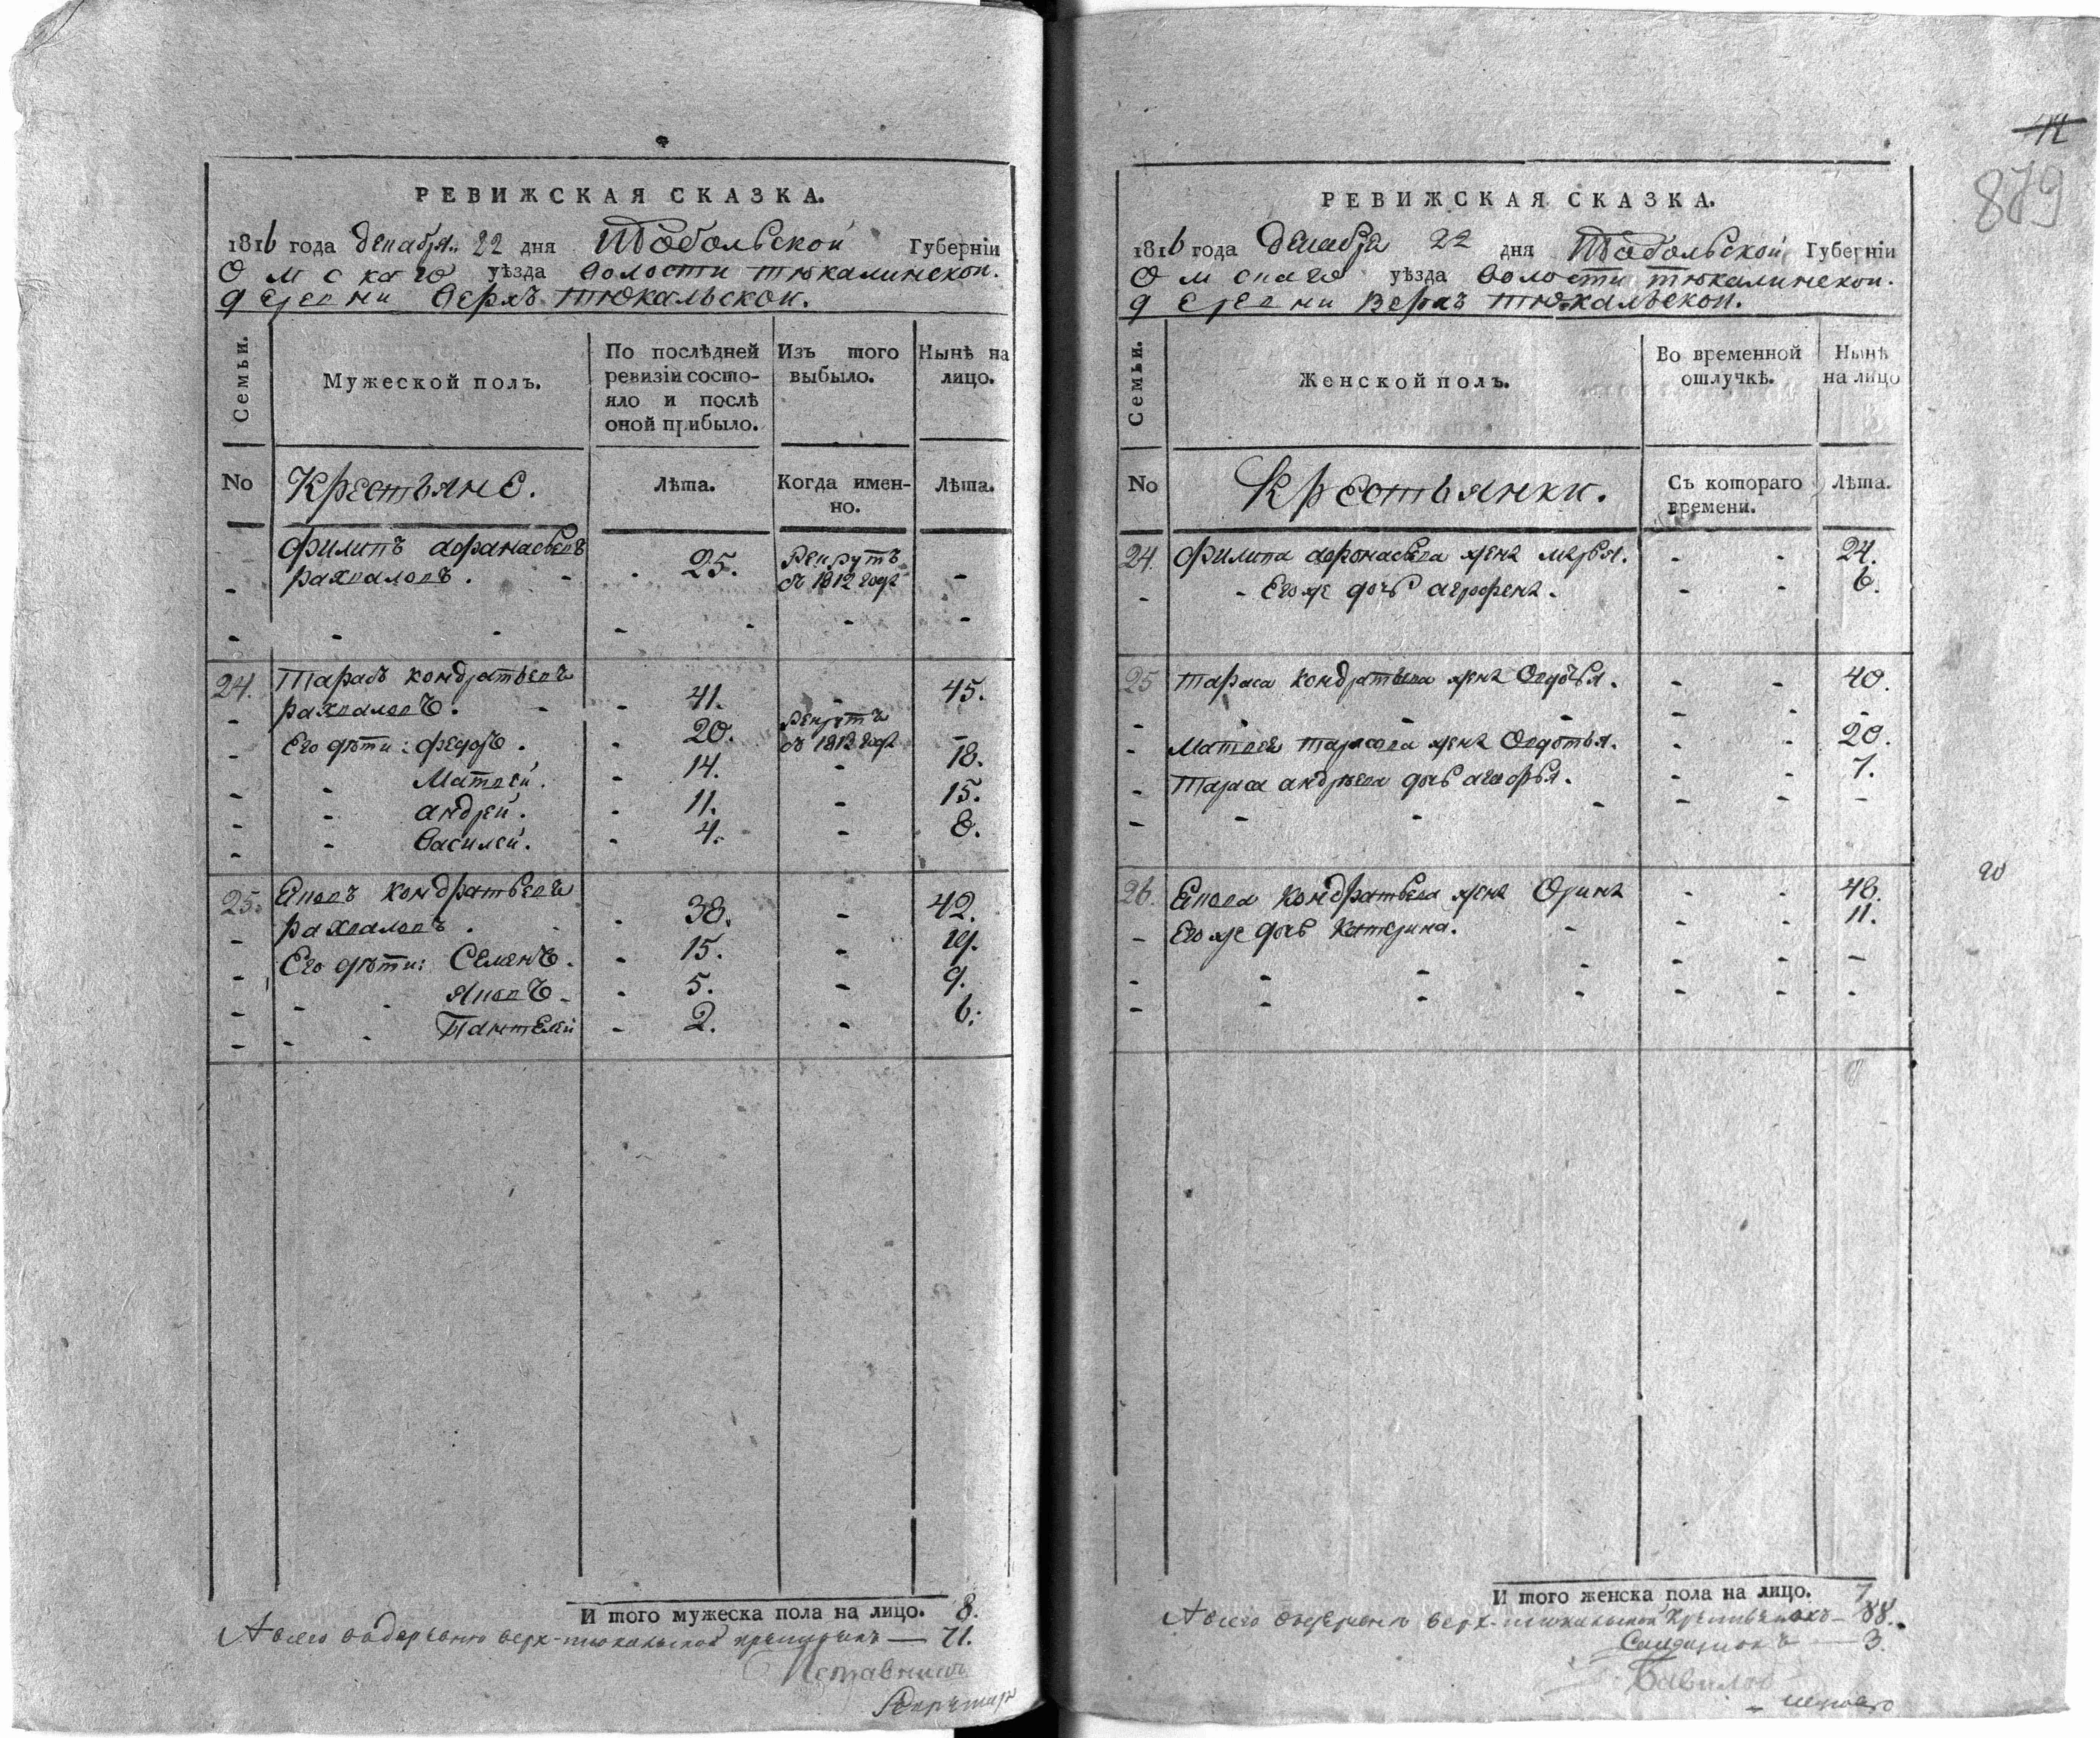 РЕВИЖСКАЯ СКАЗКА.
1816 года декабря 22 дня Тобольской Губерніи
Омскаго уѣзда волости тюкалинскои.
деревни верхъ тюкальскои.
Семьи.
Мужеской полъ.
По послѣдней ревизіи состо-
яло и послѣ
оной прибыло.
Изъ того выбыло.
Нынѣ на лицо.
No
Крестьяне.
Лѣта.
Когда имен-
но.
Лѣта.
Филипъ афанасьевъ
рахваловъ. 25. Рекрутъ
въ 1812 годе
24. Тарасъ кондратьевъ
рахваловъ. 41. 45.
Его дѣти: федоръ. 20. Рекрутъ
въ 1812 годе
Матвей. 14. 18.
андрей. 11. 15.
василей. 4. 8.
25. Яковъ кондратьевъ
рахваловъ. 38. 42.
Его дѣти: Семенъ. 15. 19.
яковъ 5. 9.
Пантелей 2. 6.
И того мужеска пола на лицо. 8.
А всего в деревню верх-тюкальской 71.
Исправникъ
Секретарь
879
РЕВИЖСКАЯ СКАЗКА.
1816 года декабря 22 дня Тобольской Губерніи
Омскаго уѣзда волости тюкалинскои.
деревни верхъ тюкальскои.
Семьи.
Женской полъ.
Во временной
отлучкѣ.
Нынѣ
на лицо
No
Крестьянки.
Съ котораго
времени.
Лѣта.
24. Филипа афонасьева жена марья. 24.
Его же дочь агрофена. 6.
25 тараса кондратьева жена Овдотья. 40.
Матвея тарасова жена Овдотья. 20.
Тараса андрѣева дочь 7.
26. Якова кондратьева жена Орина 48.
Его же дочь катерина. 11.
И того женска пола на лицо. 7
А всего верх-тюкальской крестьянокъ 88.
Солдатокъ 3.